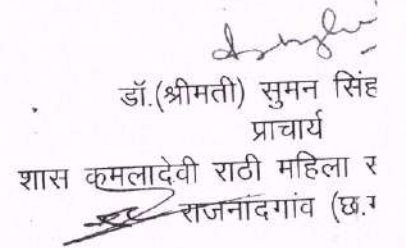 डॉ.(श्रीमती) सुमन सिंह
प्राचार्य
शास कमलादेवी राठी महिला
राजनांदगांव (छ.ग